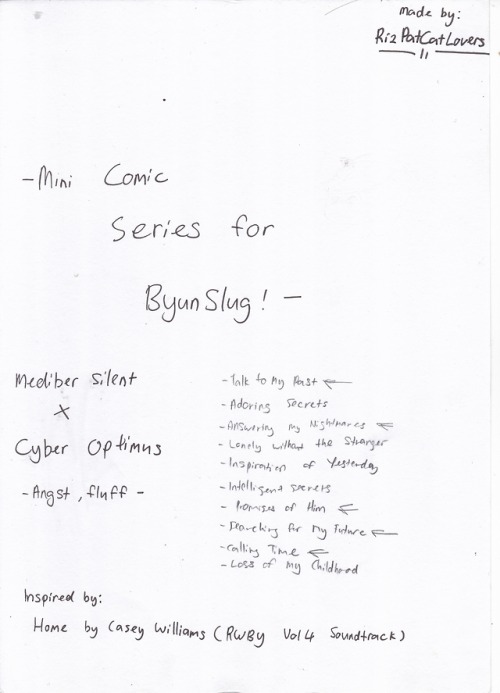 made by:
RizPatCatLovers
- Mini Comic
Series for
ByunSlug! -
Mediber Silent
X
Cyber Optimus
- Angst, fluff -
- Talk to My Past ←
- Adoring Secrets
- Answering my Nightmares ←
- Lonely without the Stranger
- Inspiration of Yesterday
- Intelligent secrets
- Promises of Him ←
- Searching for My Future ←
- Calling Time ←
- Loss of My Childhood
Inspired by:
Home by Casey Williams (RWBY Vol 4 Soundtrack)